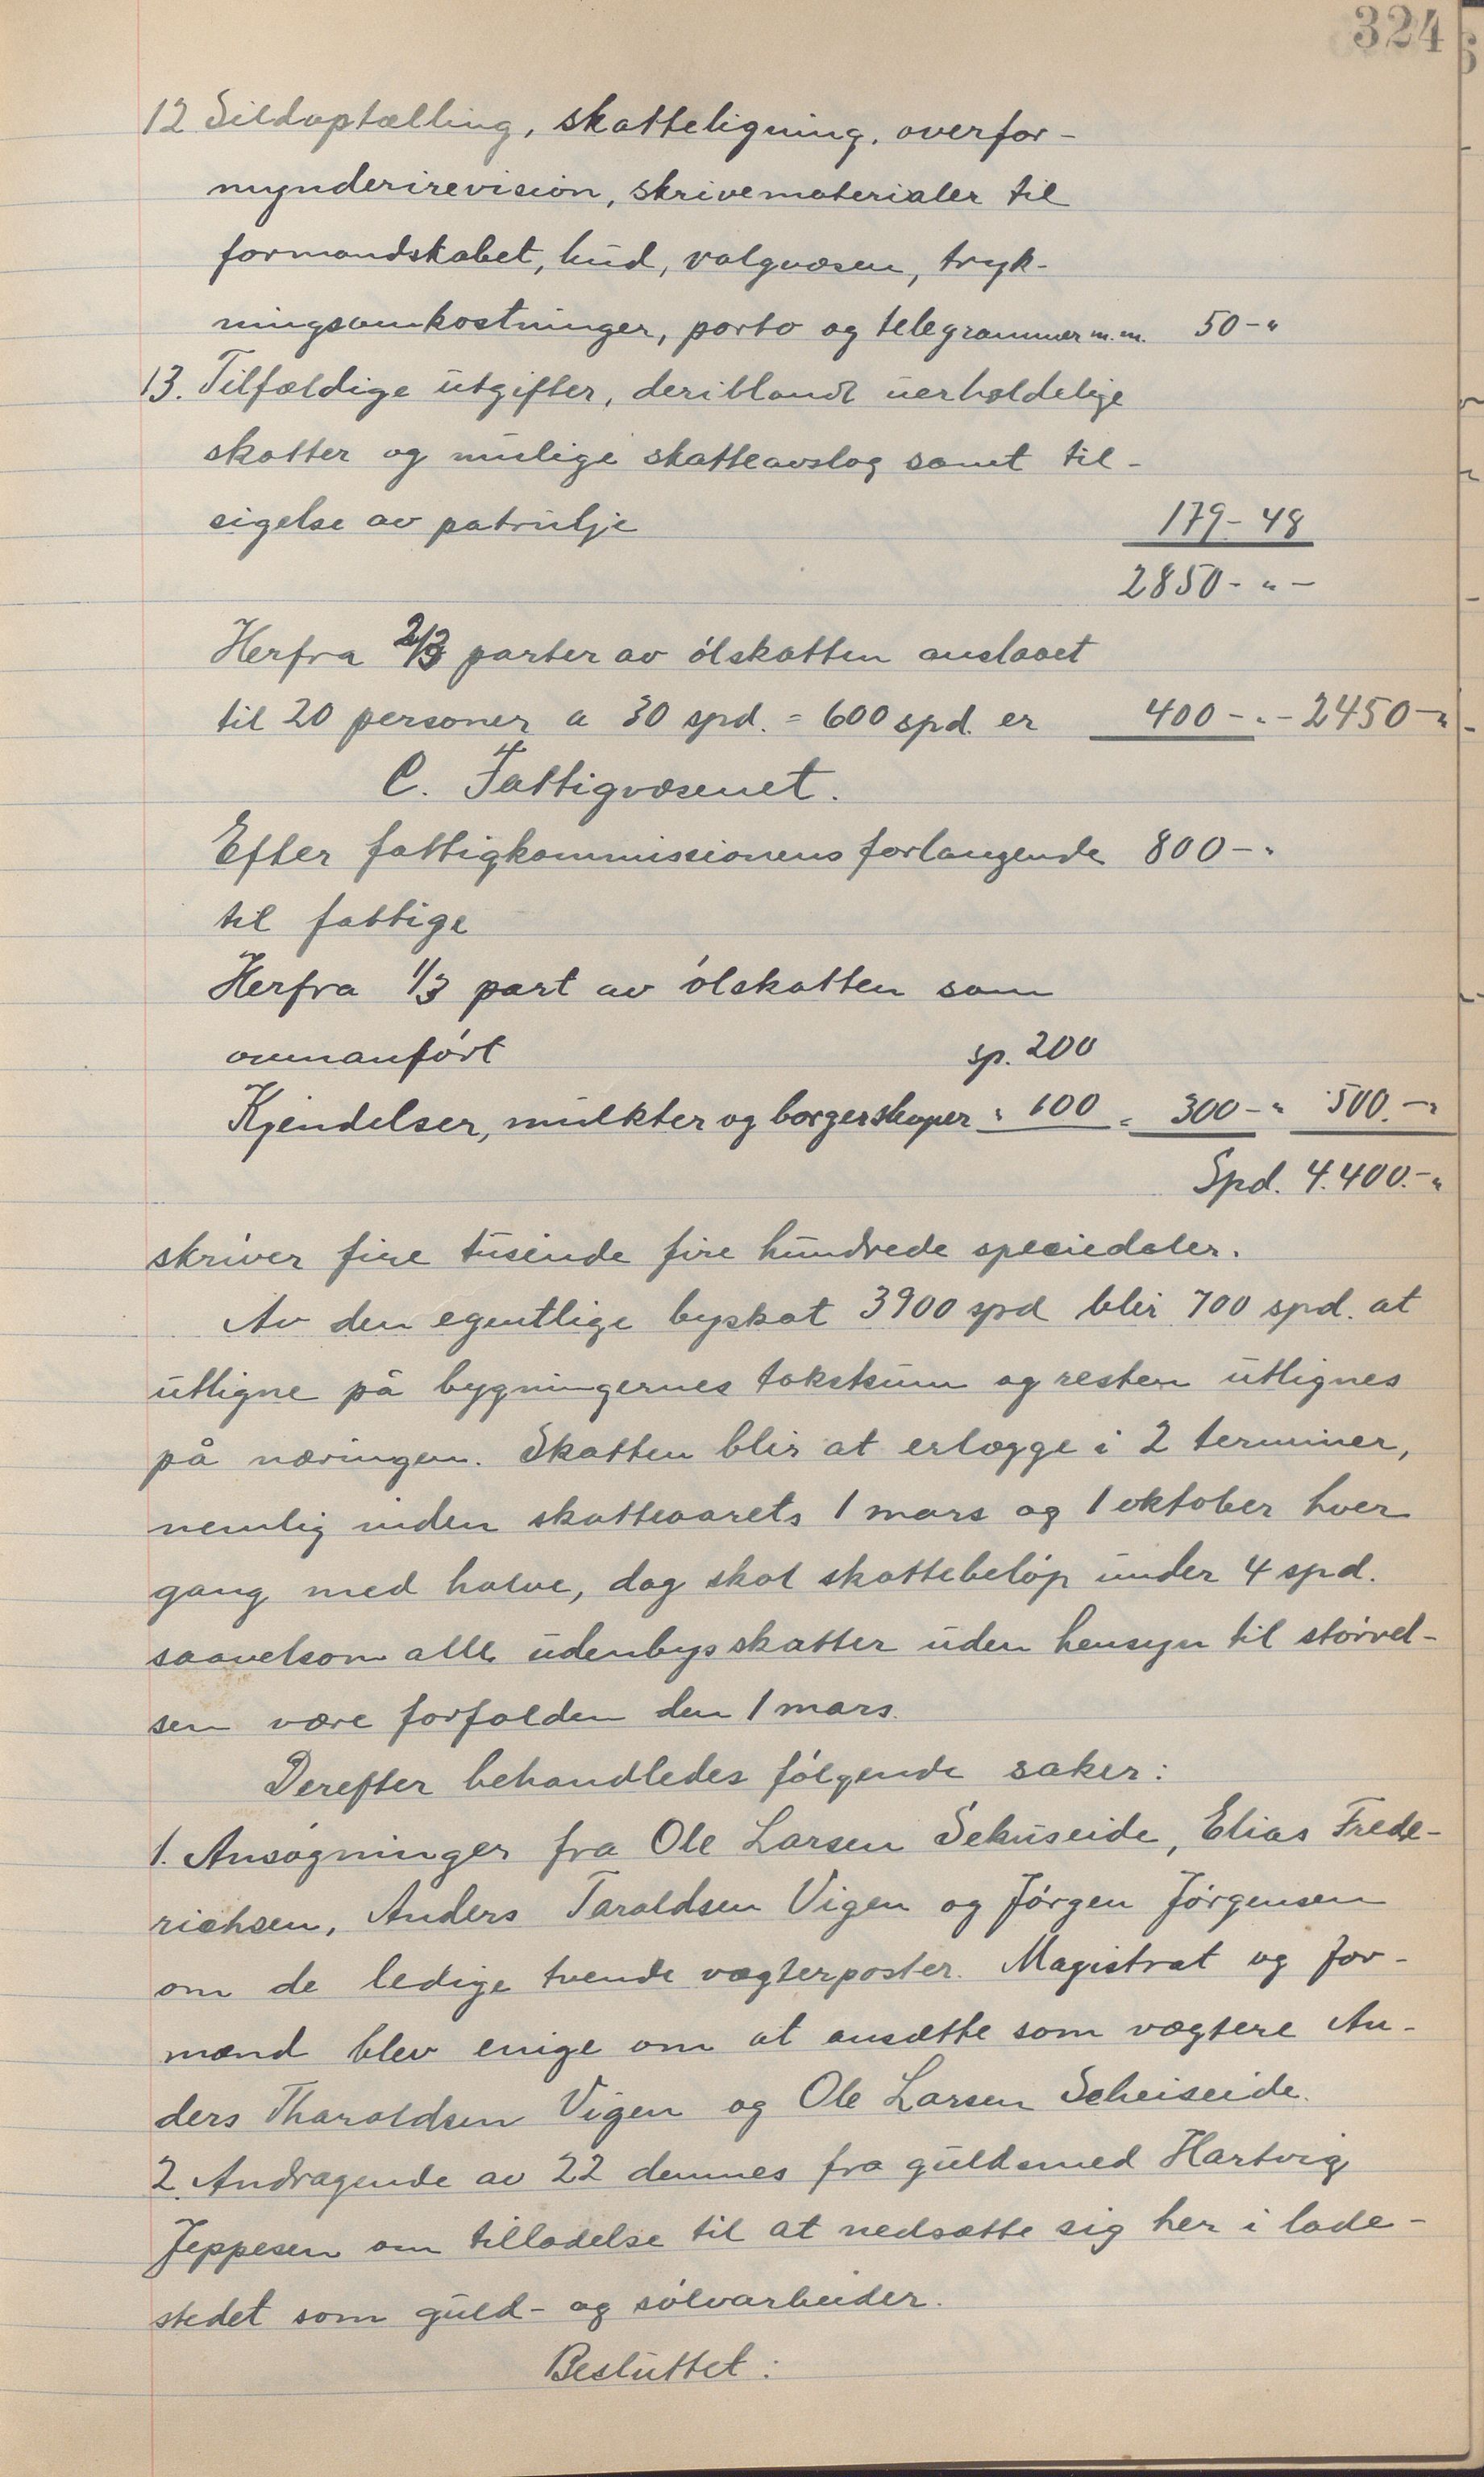 324
12 Sildoptælling, skatteligning, overfor-
mynderirevision, skrivematerialer til
formandskabet, bud, valgvæsen, tryk-
ningsomkostninger, porto og telegrammer m.m. 50-"
13. Tilfældige utgifter, deriblandt uerholdelige
skatter og mulige skatteavslag samt til-
sigelse av patrulje 179-48
2850-"-
Herfra 2/3 parter av ølskatten anslaaet
til 20 personer a 30 spd. = 600 spd. er 400-"- 2450-"
C. Fattigvæsenet.
Efter fattigkommissionens forlangende 800-"
til fattige
Herfra 1/3 part av ølskatten som
ovenanført sp. 200
Kjendelser, mulkter og borgerskaper " 100 = 300-" 500.-"
Spd. 4.400.-"
skriver fire tusinde fire hundrede speciedaler.
Av den egentlige byskat 3900 spd blir 700 spd. at
utligne på bygningernes takstsum og resten utlignes
på næringen. Skatten blir at erlægge i 2 terminer,
nemlig inden skatteaarets 1 mars og 1 oktober hver
gang med halve, dog skal skattebeløp under 4 spd.
saavelsom alle udenbys skatter uden hensyn til størrel-
sen være forfalden den 1 mars.
Derefter behandledes følgende saker:
1. Ansøgninger fra Ole Larsen Sekuseide, Elias Frede-
richsen, Anders Taraldsen Vigen og Jørgen Jørgensen
om de ledige tvende vægterposter. Magistrat og for-
mænd blev enige om at ansætte som vægtere An-
ders Tharaldsen Vigen og Ole Larsen Scheiseide.
2. Andragende av 22 dennes fra guldsmed Hartvig
Jeppesen om tilladelse til at nedsætte sig her i lade-
stedet som guld- og sølvarbeider.
Besluttet: